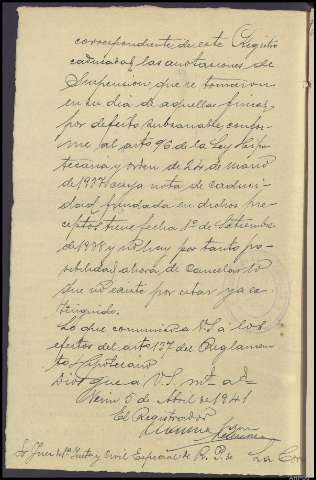 correspondiente de este Registro
caducadas las anotaciones de
Suspension que se tomaron
en su dia de aquellas fincas
por defecto subsanable, confor-
me al arto 96 de la Ley hipo-
tecaria y orden de 24 de marzo
de 1937 cuya nota de caduci-
dad fundada en dichos pre-
ceptos tiene fecha 1º de Setiembre
de 1938 y no hay por tanto po-
sibilidad ahora de cancelar lo
que no existe por estar ya ex-
tinguido.
Lo que comunico a V.S a los
efectos del arto 137 del Reglamen-
to hipotecario
Dios gue a V.S. ms. as.
5 de Abril de 1941
El Registrador
Sr Juez de 1ª Insta y Civil Especial de R. P. de La Cor